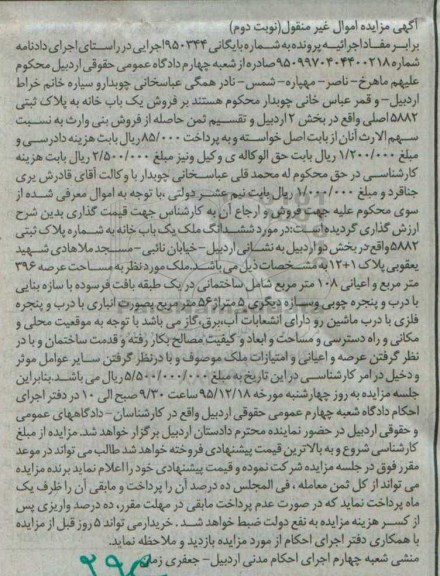 آگهی مزایده اموال غیر منقول(نوبت دوم)
برابر مفاد اجرائیه پرونده به شماره بایگانی ۹۵۰۳۴۴ اجرایی در راستای اجرای دادنامه
شماره ۹۵۰۹۹۷۰۴۰۴۴۰۰۲۱۸ صادره از شعبه چهارم دادگاه عمومی حقوقی اردبیل محکوم
علیهم ماهرخ- ناصر- مهپاره- شمس- نادر همگی عباسخانی چوبدار و سیاره خانم خراط
اردبیل- و قمر عباس خانی چوبدار محکوم هستند بر فروش یک باب خانه به پلاک ثبتی
۵۸۸۲ اصلی واقع در بخش ۲ اردبیل و تقسیم ثمن حاصله از فروش بنی وارث به نسبت
سهم الارث آنان از بابت اصل خواسته و به پرداخت ۸۵/۰۰۰ ریال بابت هزینه دادرسی و
مبلغ ۱/۲۰۰/۰۰۰ ریال بابت حق الوکاله ی وکیل و نیز مبلغ ۲/۵۰۰/۰۰۰ ریال بابت هزینه
کارشناسی در حق محکوم له محمد قلی عباسخانی چوبدار با وکالت آقای قادرش یری
جناقرد و مبلغ ۱/۰۰۰/۰۰۰ ریال بابت نیم عشر دولتی ،با توجه به اموال معرفی شده از
سوی محکوم علیه جهت فروش و ارجاع آن به کارشناس جهت قیمت گذاری بدین شرح
ارزش گذاری گردیده است :در مورد ششدانگ ملک یک باب خانه به شماره پلاک ثبتی
۵۸۸۲ واقع در بخش دو اردبیل به نشانی اردبیل- خیابان نائبی- مسجد ملاهادی شهید
یعقوبی پلاک ۱+۱۲ به مشخصات ذیل می باشند.ملک مورد نظر به مساحت عرصه ۳۹۶
متر مربع و اعیانی ۱۰۸ متر مربع شامل ساختمانی در یک طبقه بافت فرسوده با سازه بنایی
با درب و پنجره چوبی وسازه دیگری ۵ متر از ۵۶ متر مربع بصورت انباری با درب و پنجره
فلزی با درب ماشین رو دارای انشعابات آب،برق،گاز می باشد با توجه به موقعیت محلی و
مکانی و راه دسترسی و مساحت و ابعاد و کیفیت مصالح بکار رفته و قدمت ساختمان و با در
نظر گرفتن عرصه و اعیانی و امتیازات ملک موصوف و با درنظر گرفتن سایر عوامل موثر
و دخیل در امر کارشناسی در این تاریخ به مبلغ ۵/۵۰۰/۰۰۰/۰۰۰ ریال می باشد.بنابراین
جلسه مزایده به روز چهارشنبه مورخه ۹۵/۱۲/۱۸ ساعت ۹/۳۰ صبح الی ۱۰ در دفتر اجرای
احکام دادگاه شعبه چهارم عمومی حقوقی اردبیل واقع در کارشناسان- دادگاههای عمومی
و حقوقی اردبیل در حضور نماینده محترم دادستان اردبیل برگزار خواهد شد. مزایده از مبلغ
کارشناسی شروع و به بالاترین قیمت پیشنهادی فروخته خواهد شد طالب می تواند در موعد
مقرر فوق در جلسه مزایده شرکت نموده و قیمت پیشنهادی خود را اعلام نماید برنده مزایده
می تواند از کل ثمن معامله ، فی المجلس ده درصد آن را پرداخت و مابقی آن را ظرف یک
ماه پرداخت نماید که در صورت عدم پرداخت مابقی در مهلت مقرر، ده درصد واریزی پس
از کسر هزینه مزایده به نفع دولت ضبط خواهد شد . خریدار می تواند ۵ روز قبل از مزایده
با همکاری دفتر اجرای احکام از مورد مزایده بازدید و ملاحظه نماید.
منشی شعبه چهارم اجرای احکام مدنی اردبیل- جعفری زمان